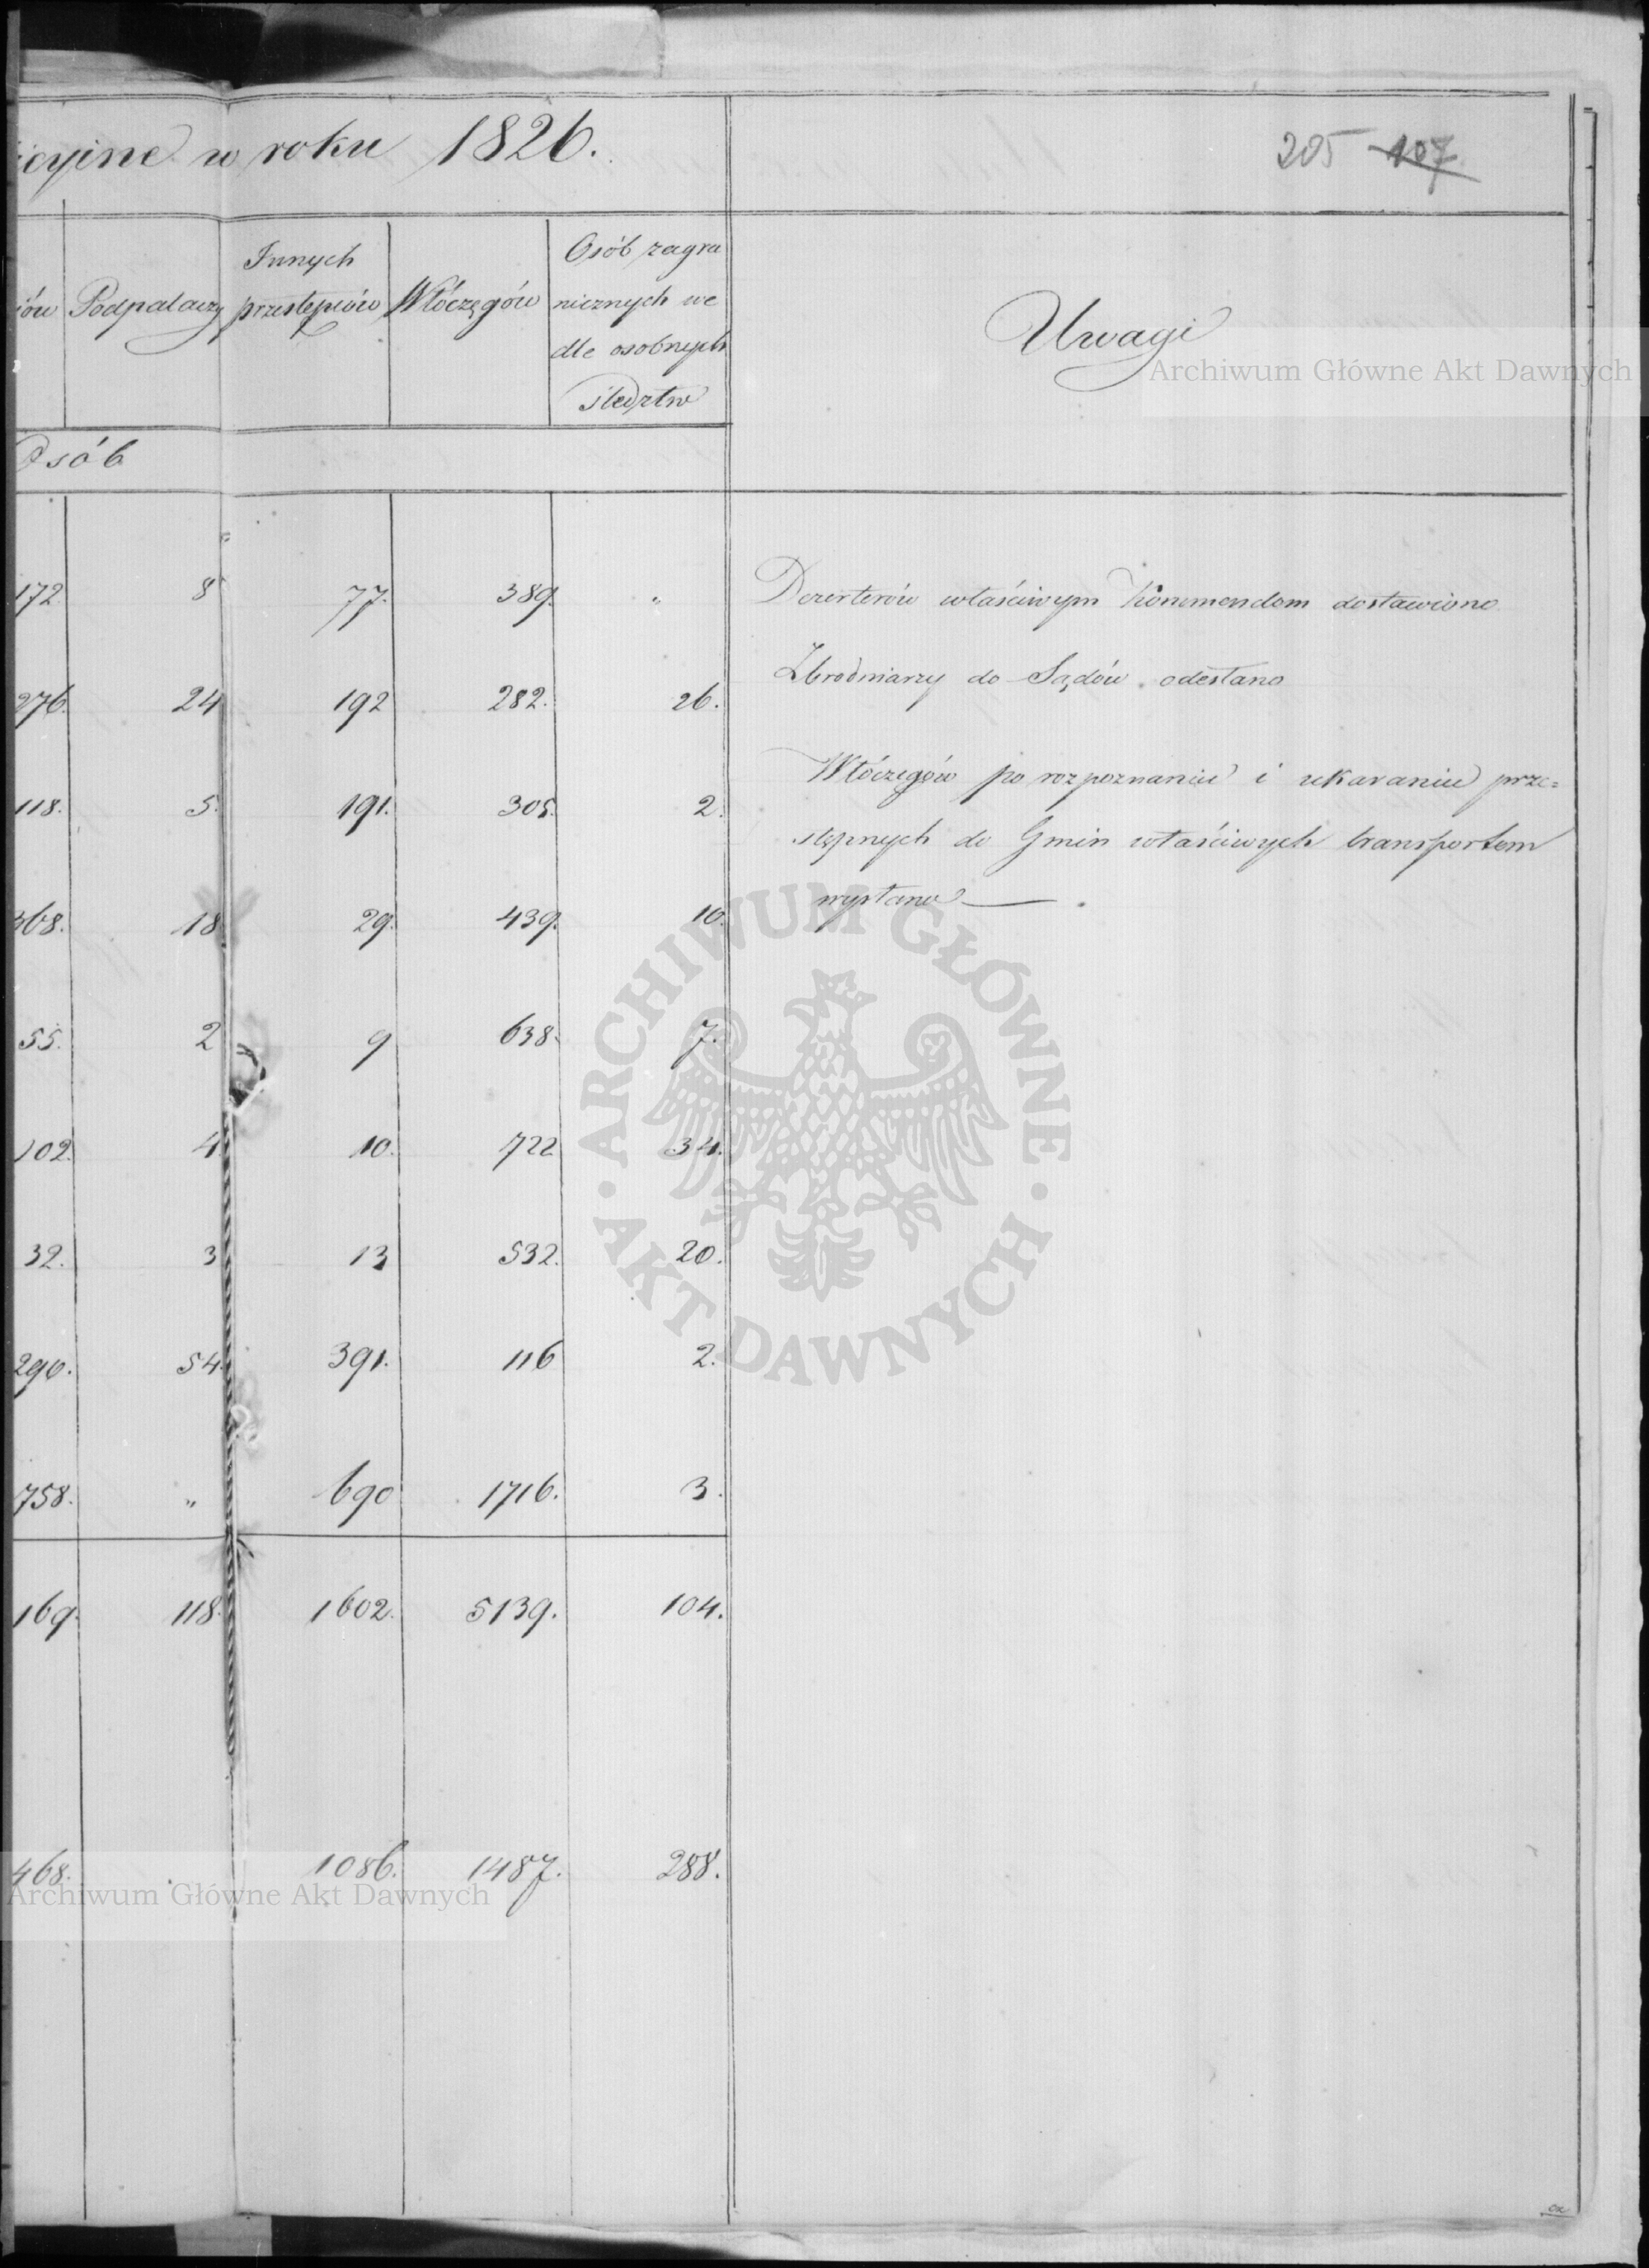 icyjne w roku 1826.
205 107
iów
Podpalaczy
Innych
przestępców
Włóczęgów
Osób zagra
nicznych we
dle osobnych
śledztw
Uwagi
Osób
172. 8 77. 389. "
276. 24 192 282. 26.
118. 5. 191. 305. 2.
368. 18 29. 439. 10.
55. 2 9 638. 7.
102. 4 10. 722 34.
32. 3 13 532. 20.
290. 54. 391. 116 2.
758. " 690 1716. 3.
169. 118. 1602. 5139. 104.
468. 1086. 1487. 288.
Dezerterów właściwym Kommendom dostawiono
Zbrodniarzy do Sądów odesłano
Włóczęgów po rozpoznaniu i ukaraniu prze=
stępnych do Gmin właściwych transportem
wysłano —
Archiwum Główne Akt Dawnych
ARCHIWUM GŁÓWNE
AKT DAWNYCH
Archiwum Główne Akt Dawnych